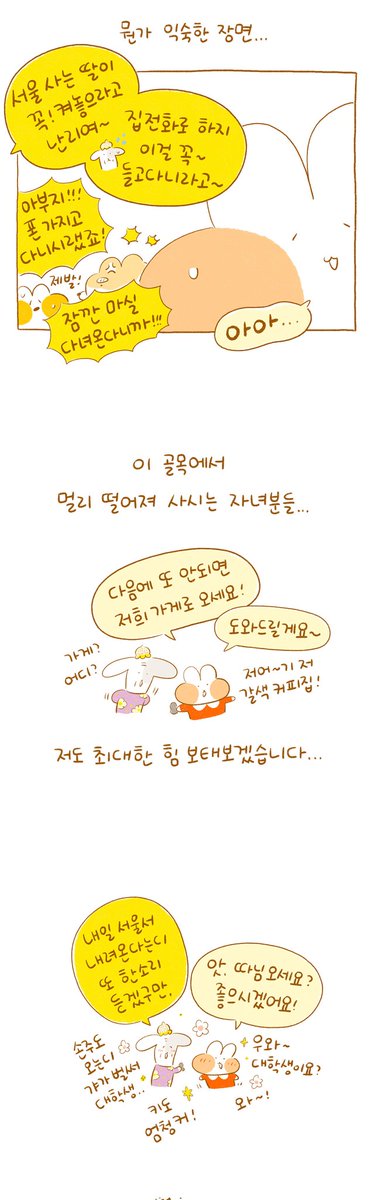 뭔가 익숙한 장면...
서울 사는 딸이
꼭! 켜놓으라고
난리여~
집전화로 하지
이걸 꼭~
들고다니라고~
아부지!!!
폰 가지고
다니시랬죠!
제발!
잠깐 마실
다녀온다니까!!!
아아...
이 골목에서
멀리 떨어져 사시는 자녀분들...
다음에 또 안되면
저희 가게로 오세요!
도와드릴게요~
가게?
어디?
저어~기 저
갈색 커피집!
저도 최대한 힘 보태보겠습니다...
내일 서울서
내려온다는디
또 한소리
듣겠구만,
앗, 따님오세요?
좋으시겠어요!
손주도
오는디
갸가 벌써
대학생..
우와~
대학생이요?
키도
엄청 커!
와~!